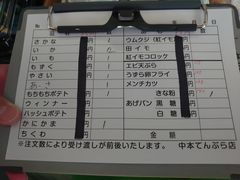 さかな 円 ウムクジ(紅イモ 円
いか 円 田イモ 円
いも 円 紅イモコロック 円
もずく 円 エビ天ぷら 円
やさい 円 うずら卵フライ 円
円 メンチカツ 円
もちもちポテト 円 きな粉 円
ウィンナー 円 あげパン 黒糖 円
ハッシュポテト 円 白糖 円
かにかま 円
ちくわ 円 金額
※注文数により受け渡しが前後いたします。 中本てんぷら店